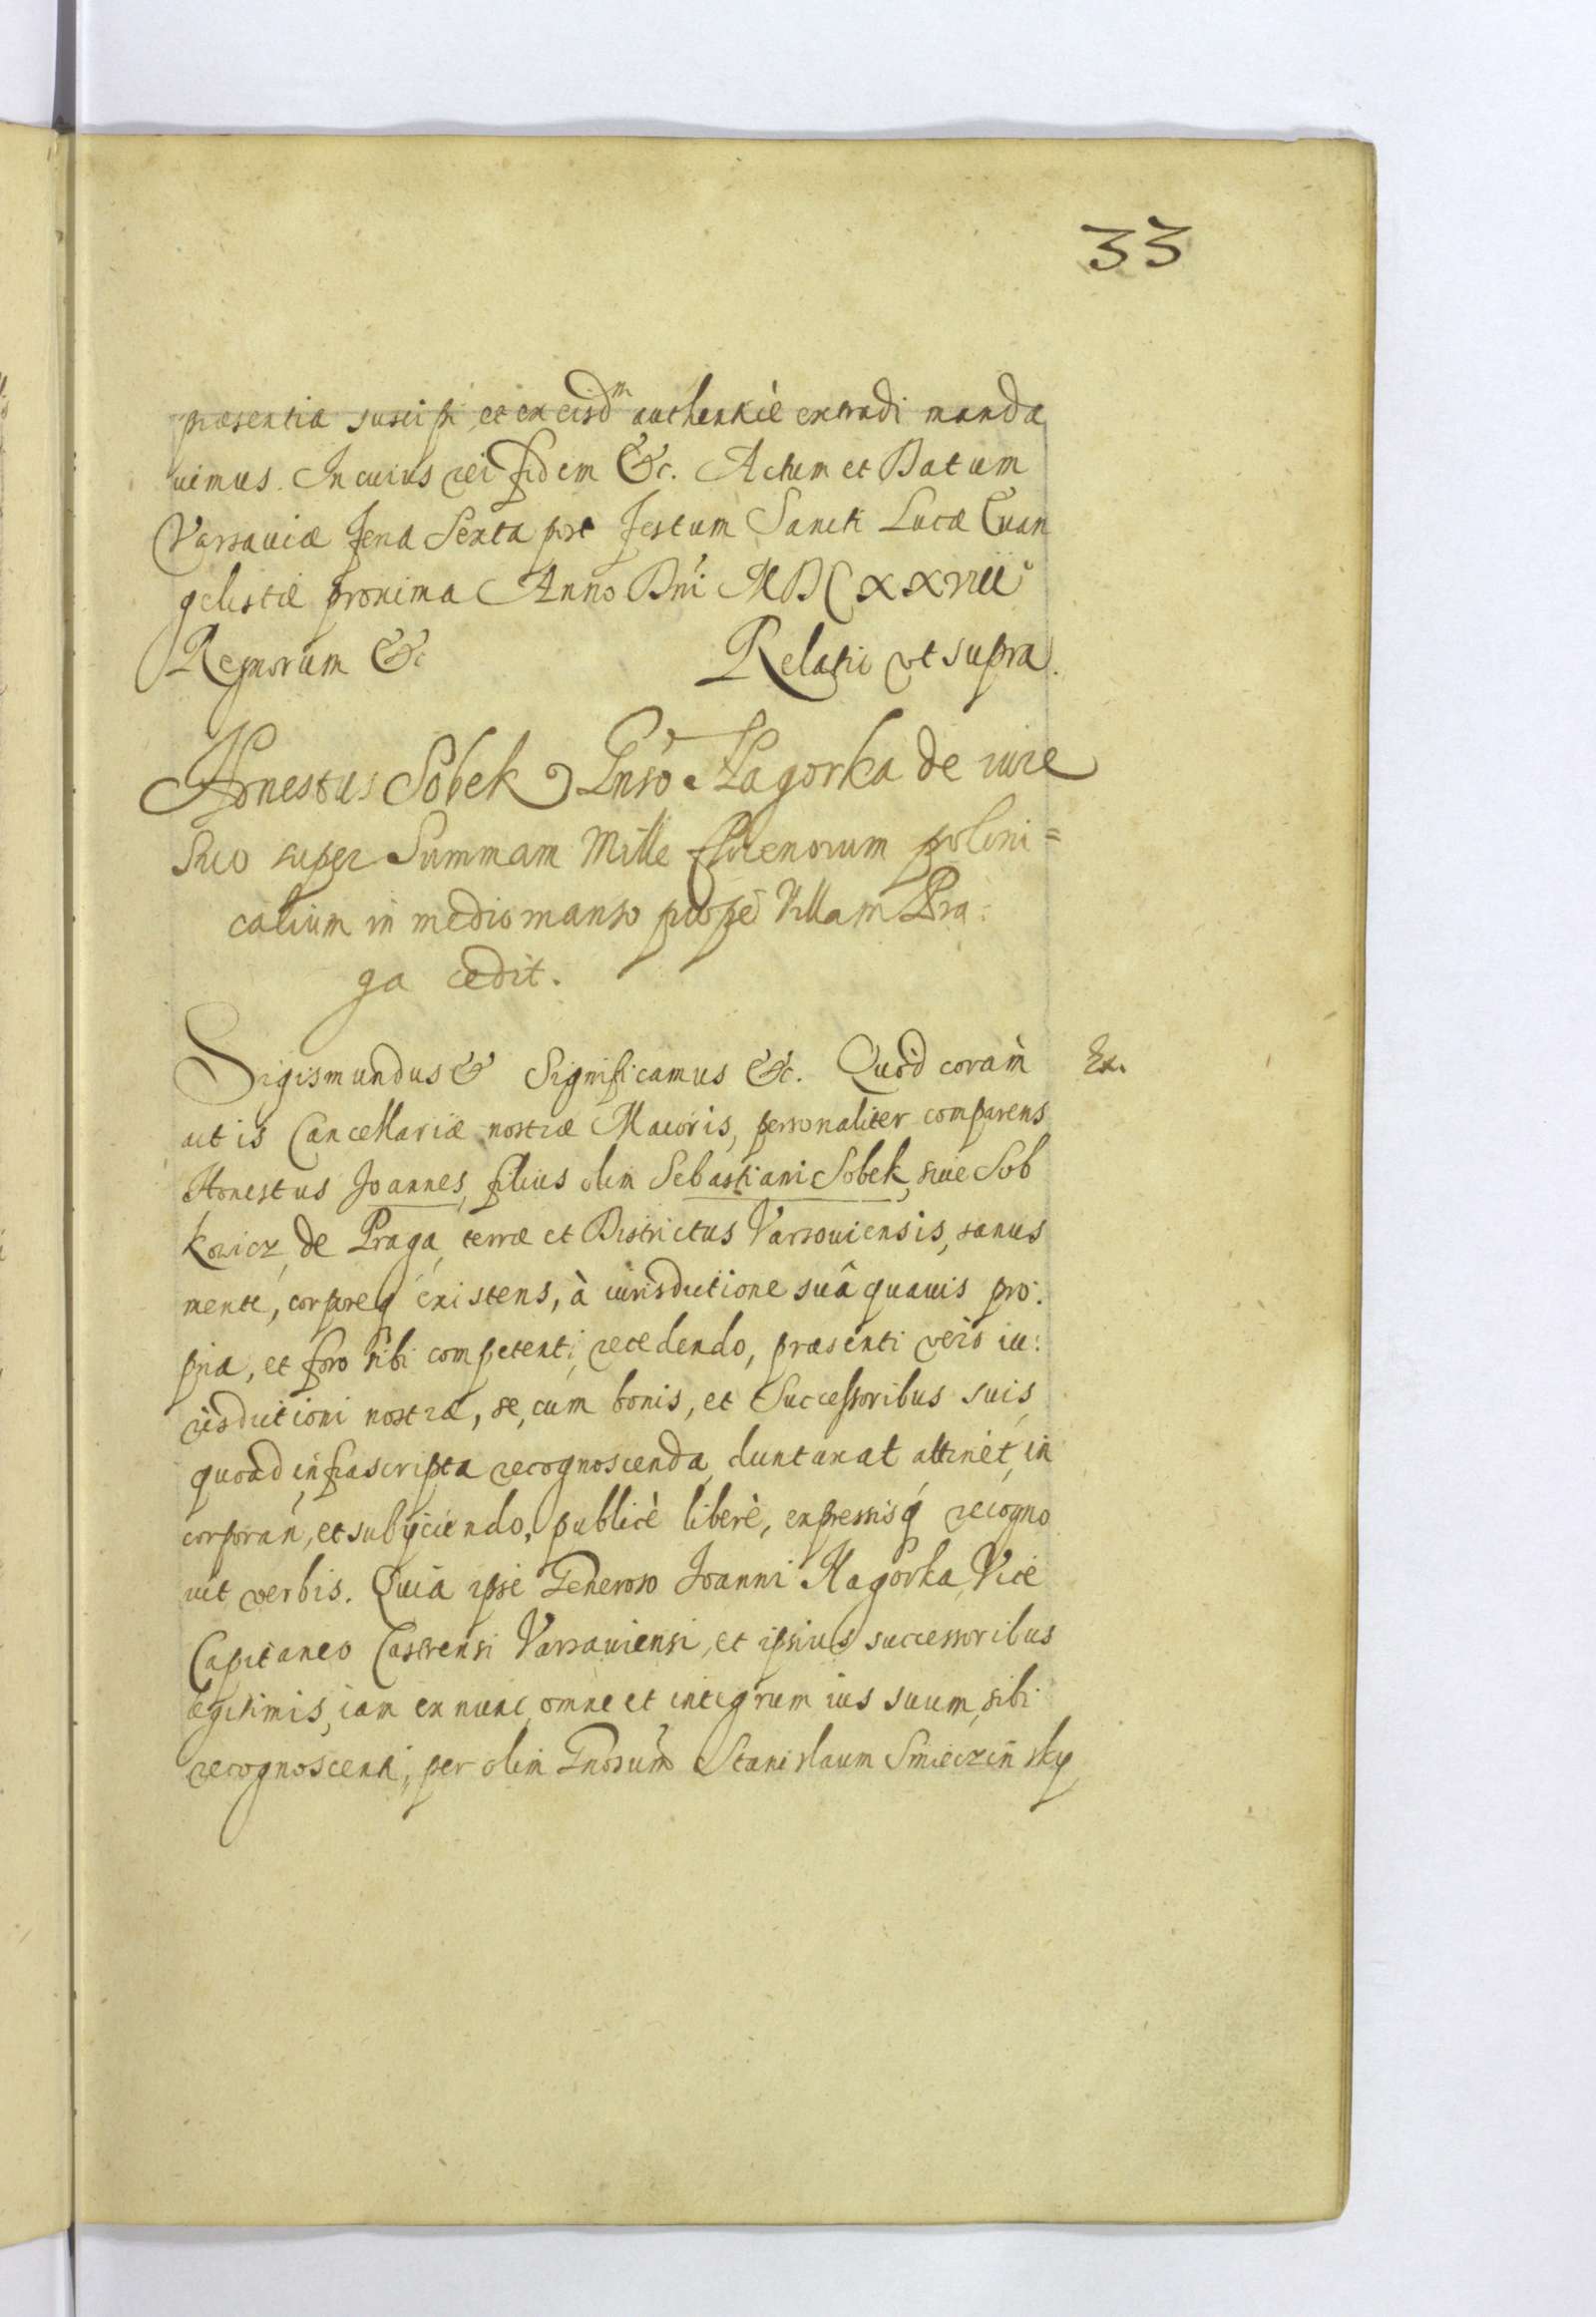 33
præsentia suscipi, et ex eisdm authenticè extradi manda
uimus. In cuius rei fidem &c. Actum et Datum
Varsauiæ feria Sexta post festum Sancti Lucæ Euan
gelistæ proxima Anno Dni MDCxxviii°
Regnorum &c Relatio vt supra.
Honestus Sobek Gnso Nagorka de iure
suo super Summam Mille florenorum poloni=
calium in medio manso prope Villam Pra:
ga cedit.
Sigismundus & Significamus &c. Quod coram Ex.
actis Cancellariæ nostræ Maioris, personaliter comparens
Honestus Joannes, filius olim Sebastiani Sobek, siue Sob
kowicz, de Praga, terræ et Districtus Varsouiensis, sanus
mente, corporeq existens, à iurisdictione suâ quauis pro:
pria, et foro sibi competenti, recedendo, præsenti vero iu:
risdictioni nostræ, se, cum bonis, et Successoribus suis,
quoad infrascripta recognoscenda, duntaxat attinet, in
corporan, et subijciendo, publicè liberè, expressisq recogno
uit verbis. Quia ipse Generoso Joanni Nagorka, Vice
Capitaneo Castrensi Varsauiensi, et ipsius successoribus
legitimis, iam ex nunc, omne et integrum ius suum, sibi
recognoscenti, per olim Gnosum Stanislaum Smieczensky